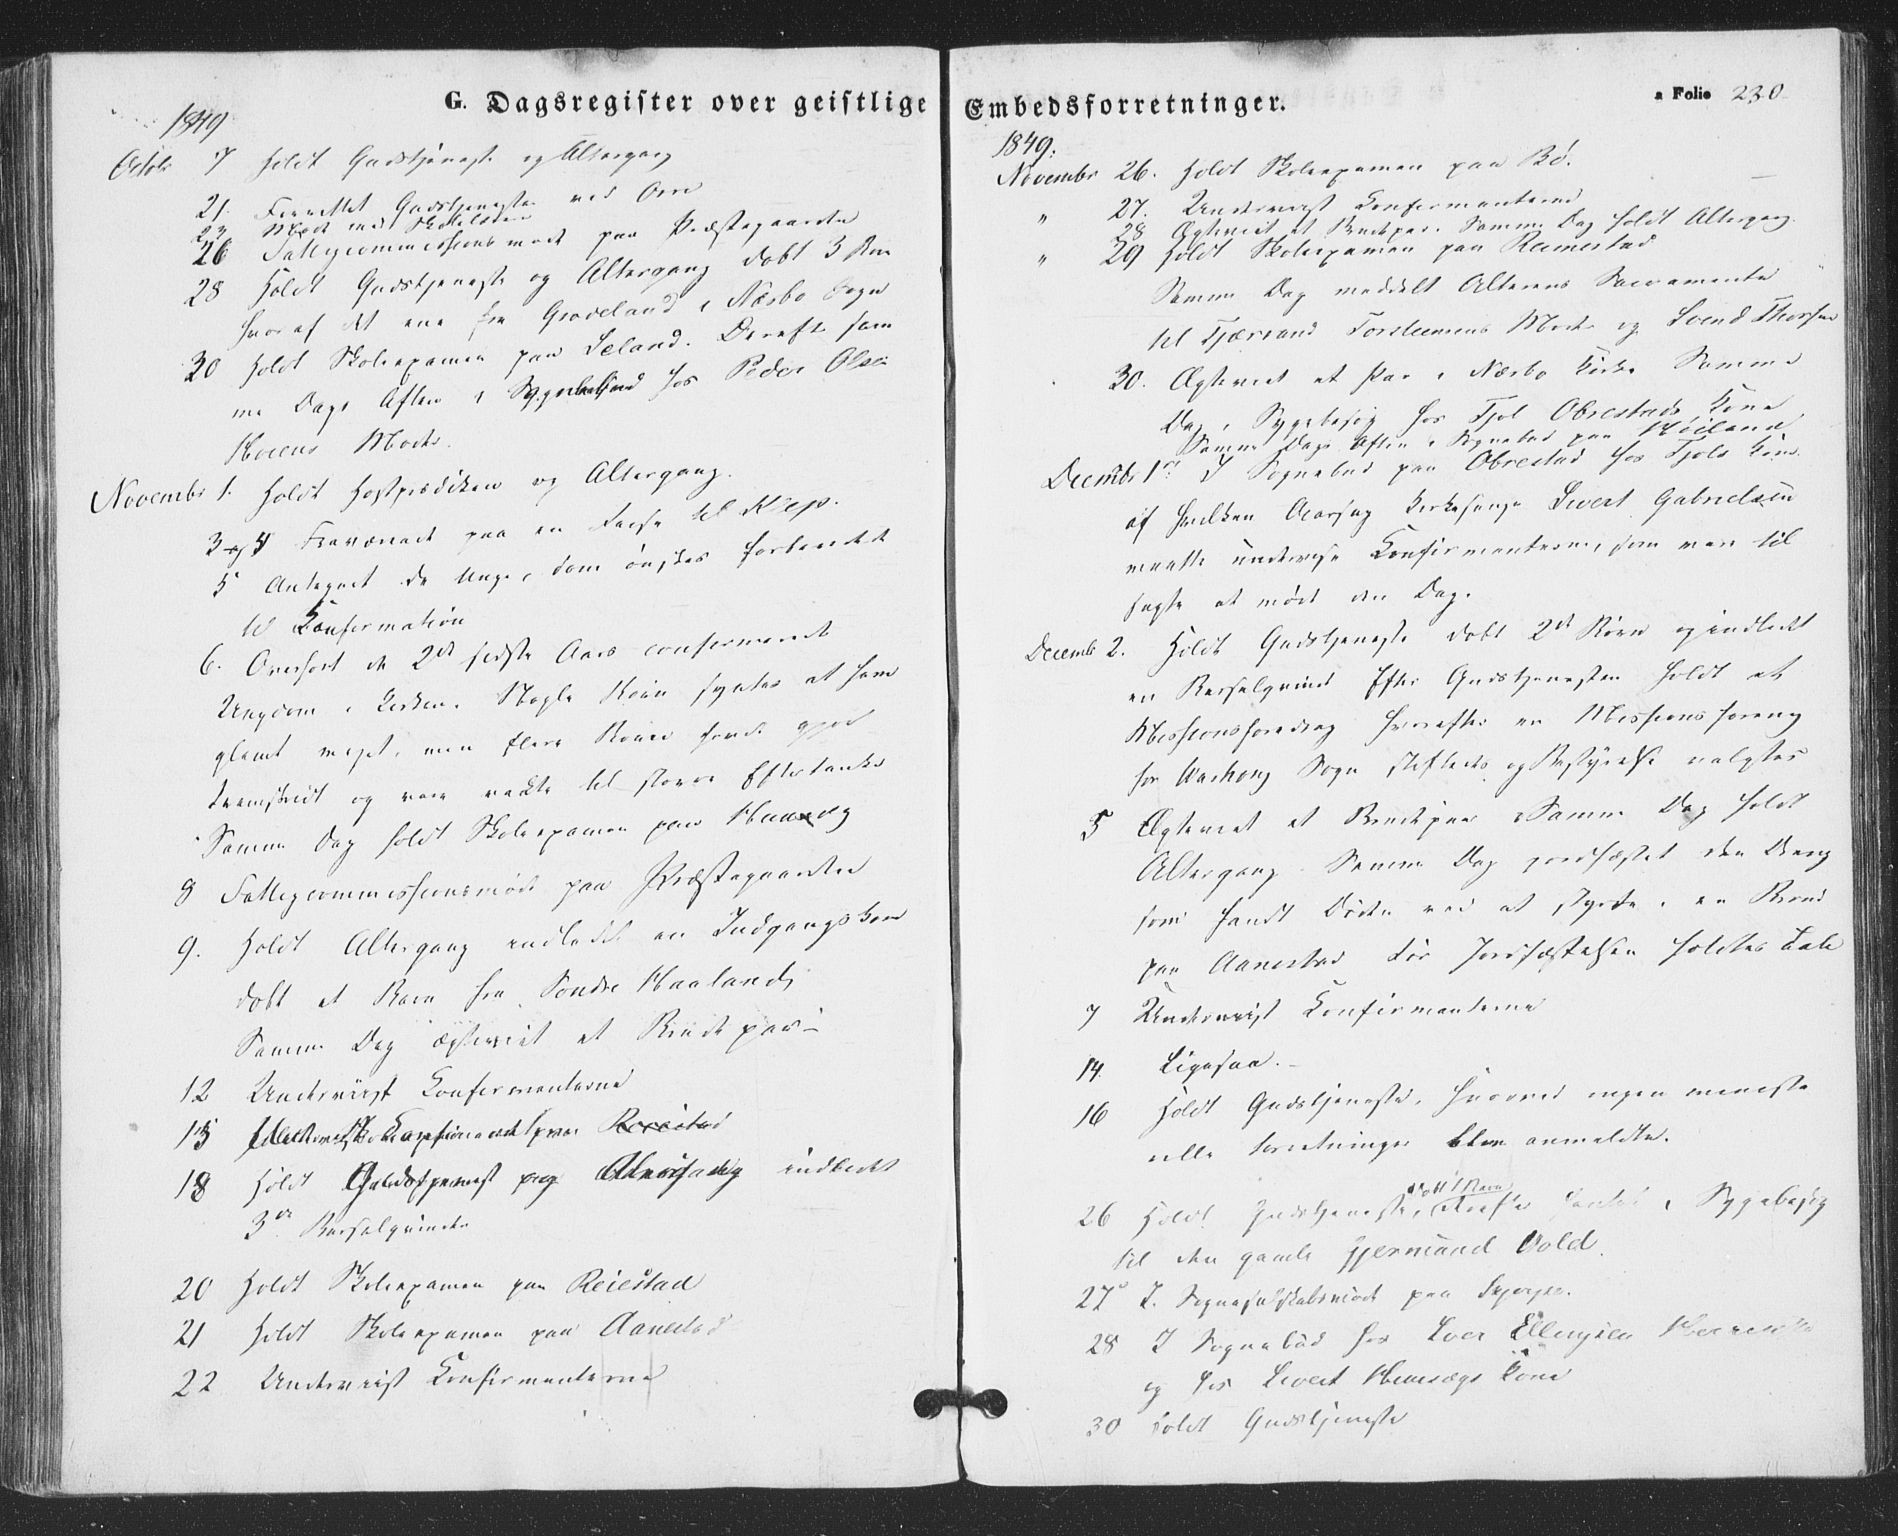 G. Dagsregister over geistlige Embedsforretninger. a Folio 230
1849
Octobr 7 holdt Gudstjeneste og Altergang
21. Forrettet Gudstjenesten ved Orre
23 Møde med
26 Fattigcommissionsmøde paa Præstegaarden
28 Holdt Gudstjeneste og Altergang døbt 3 Børn
hvoraf det ene fra Grødeland i Nærbø Sogn
30 holdt Skoleexamen paa Læland. Derefter sam
me Dags Aften i Sognebud hos Peder Olsen
Moder
Novembr 1. holdt Høstprædiken og Altergang.
3 og 4 Fraværende paa en Reise til Klep.
5 Antegnet de Unge, som ønskes forberedet
til Confirmation
6. Overhørt de 2de sidste Aars confirmerede
Ungdom i Kirken. Nogle Børn syntes at have
glemt meget, men flere Børn havde gjort
Fremskridt og vare vakte til større Eftertanke
Samme Dag holdt Skoleexamen paa
8 Fattigcommissionsmøde paa Præstegaarden
9. Holdt Altergang indledet en Indgangskone
døbt et Barn fra Søndre Haaland,
Samme Dag ægteviet et Brudepar
12 Underviist Confirmanterne
15
18 Holdt Gudstjeneste og Altergang indledet
3de Barselqvinder
20 Holdt Skoleexamen paa Reiestad
21 Holdt Skoleexamen paa Aanestad
22 Underviist Confirmanterne
1849.
Novembr 26. Holdt Skoleexamen paa Bø.
" 27. Underviist Confirmanterne
" 28 Ægteviet et Brudepar. Samme Dag holdt Altergang.
" 29 Holdt Skoleexamen paa Reimestad
Samme Dag meddelt Alterens Sacramente
til Tjærrand Torsteinsens Moder og Svend Thorsen
30. Ægteviet et Par i Nærbø Kirke Samme
Dag i Sygebesøg hos Tjøl Obrestads Kone
Samme Dags Aften i Sognebud paa Høiland
Decembr 1ste I Sognebud paa Obrestad hos Tjøls Kone
af hvilken Aarsag Kirkesanger Sivert Gabrielsen
maatte undervise Confirmanterne, som vare til
sagte at møde den Dag.
Decemb 2. Holdt Gudstjeneste døbt 2de Børn og indledet
en Barselqvinde Efter Gudstjenesten holdt et
Missionsforedrag hvorefter en Missionsforening
for Varhoug Sogn stiftedes og Bestyrelse valgtes
5 Ægteviet et Brudepar Samme Dag holdt
Altergang Samme Dag jordfæstet den Dreng
som fandt Døden ved at styrte i en Brønd
paa Aanestad Før Jordfæstelsen holdtes Tale
7 Underviist Confirmanterne
14. Ligesaa.
16 Holdt Gudstjeneste, hvorved ingen ministe
rielle Forretninger blev anmeldte.
26 Holdt Gudstjeneste, døbt 1 Barn i Sygebesøg
til den gamle Gjermund Vold.
27 I. Sogneselskabsmøde paa
28 I Sognebud hos Iver Ellingsen
og hos Sivert Kone
30 Holdt Gudstjeneste